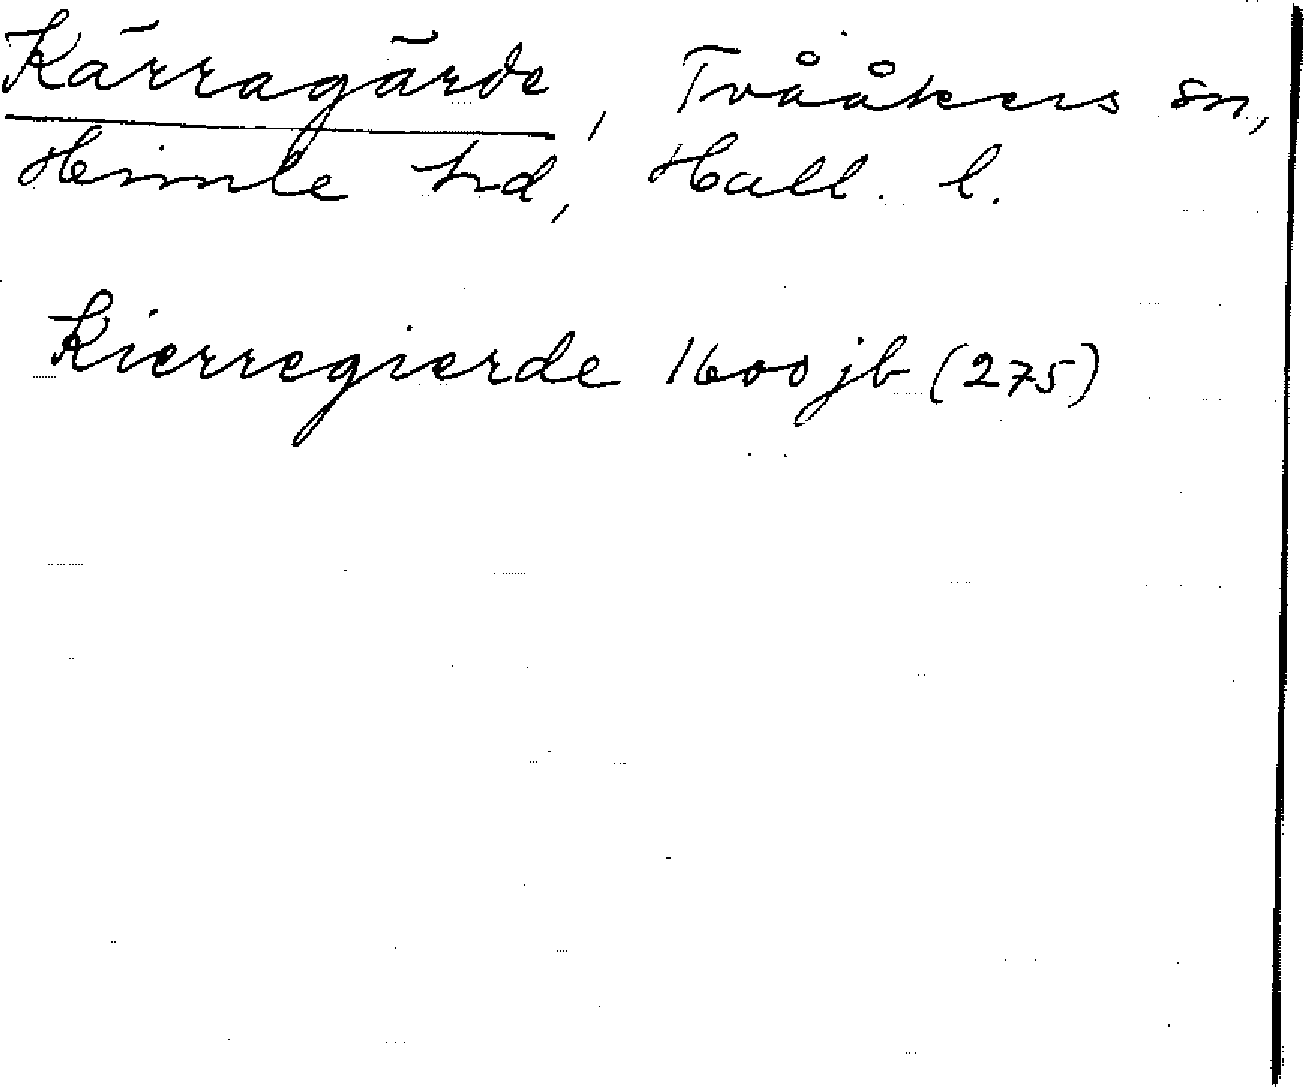 Kärragärde, Tvååkers sn,
Himle hd, Hall. l.
Kierregierde 1600 jb (275)